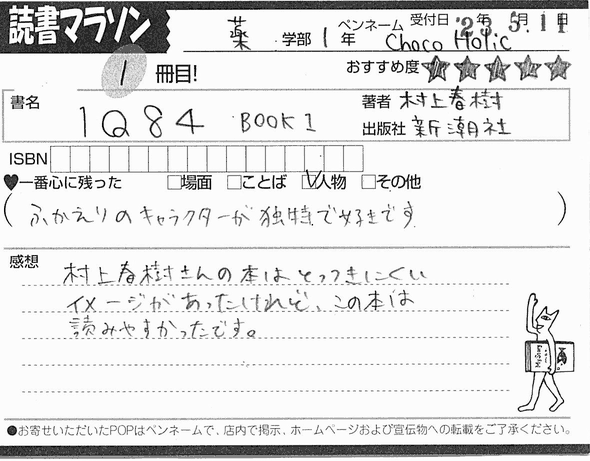 読書マラソン
薬 学部 1 年 ペンネーム Choco Holic 受付日 '23年 5月 11日
1 冊目!
おすすめ度 ★★★★★
書名 1Q84 BOOK1
著者 村上春樹
出版社 新潮社
ISBN
♥一番心に残った □場面 □ことば ☑人物 □その他
(ふかえりのキャラクターが独特で好きです)
感想
村上春樹さんの本はとっつきにくい
イメージがあったけれど、この本は
読みやすかったです。
●お寄せいただいたPOPはペンネームで、店内で掲示、ホームページおよび宣伝物への転載をご了承ください。